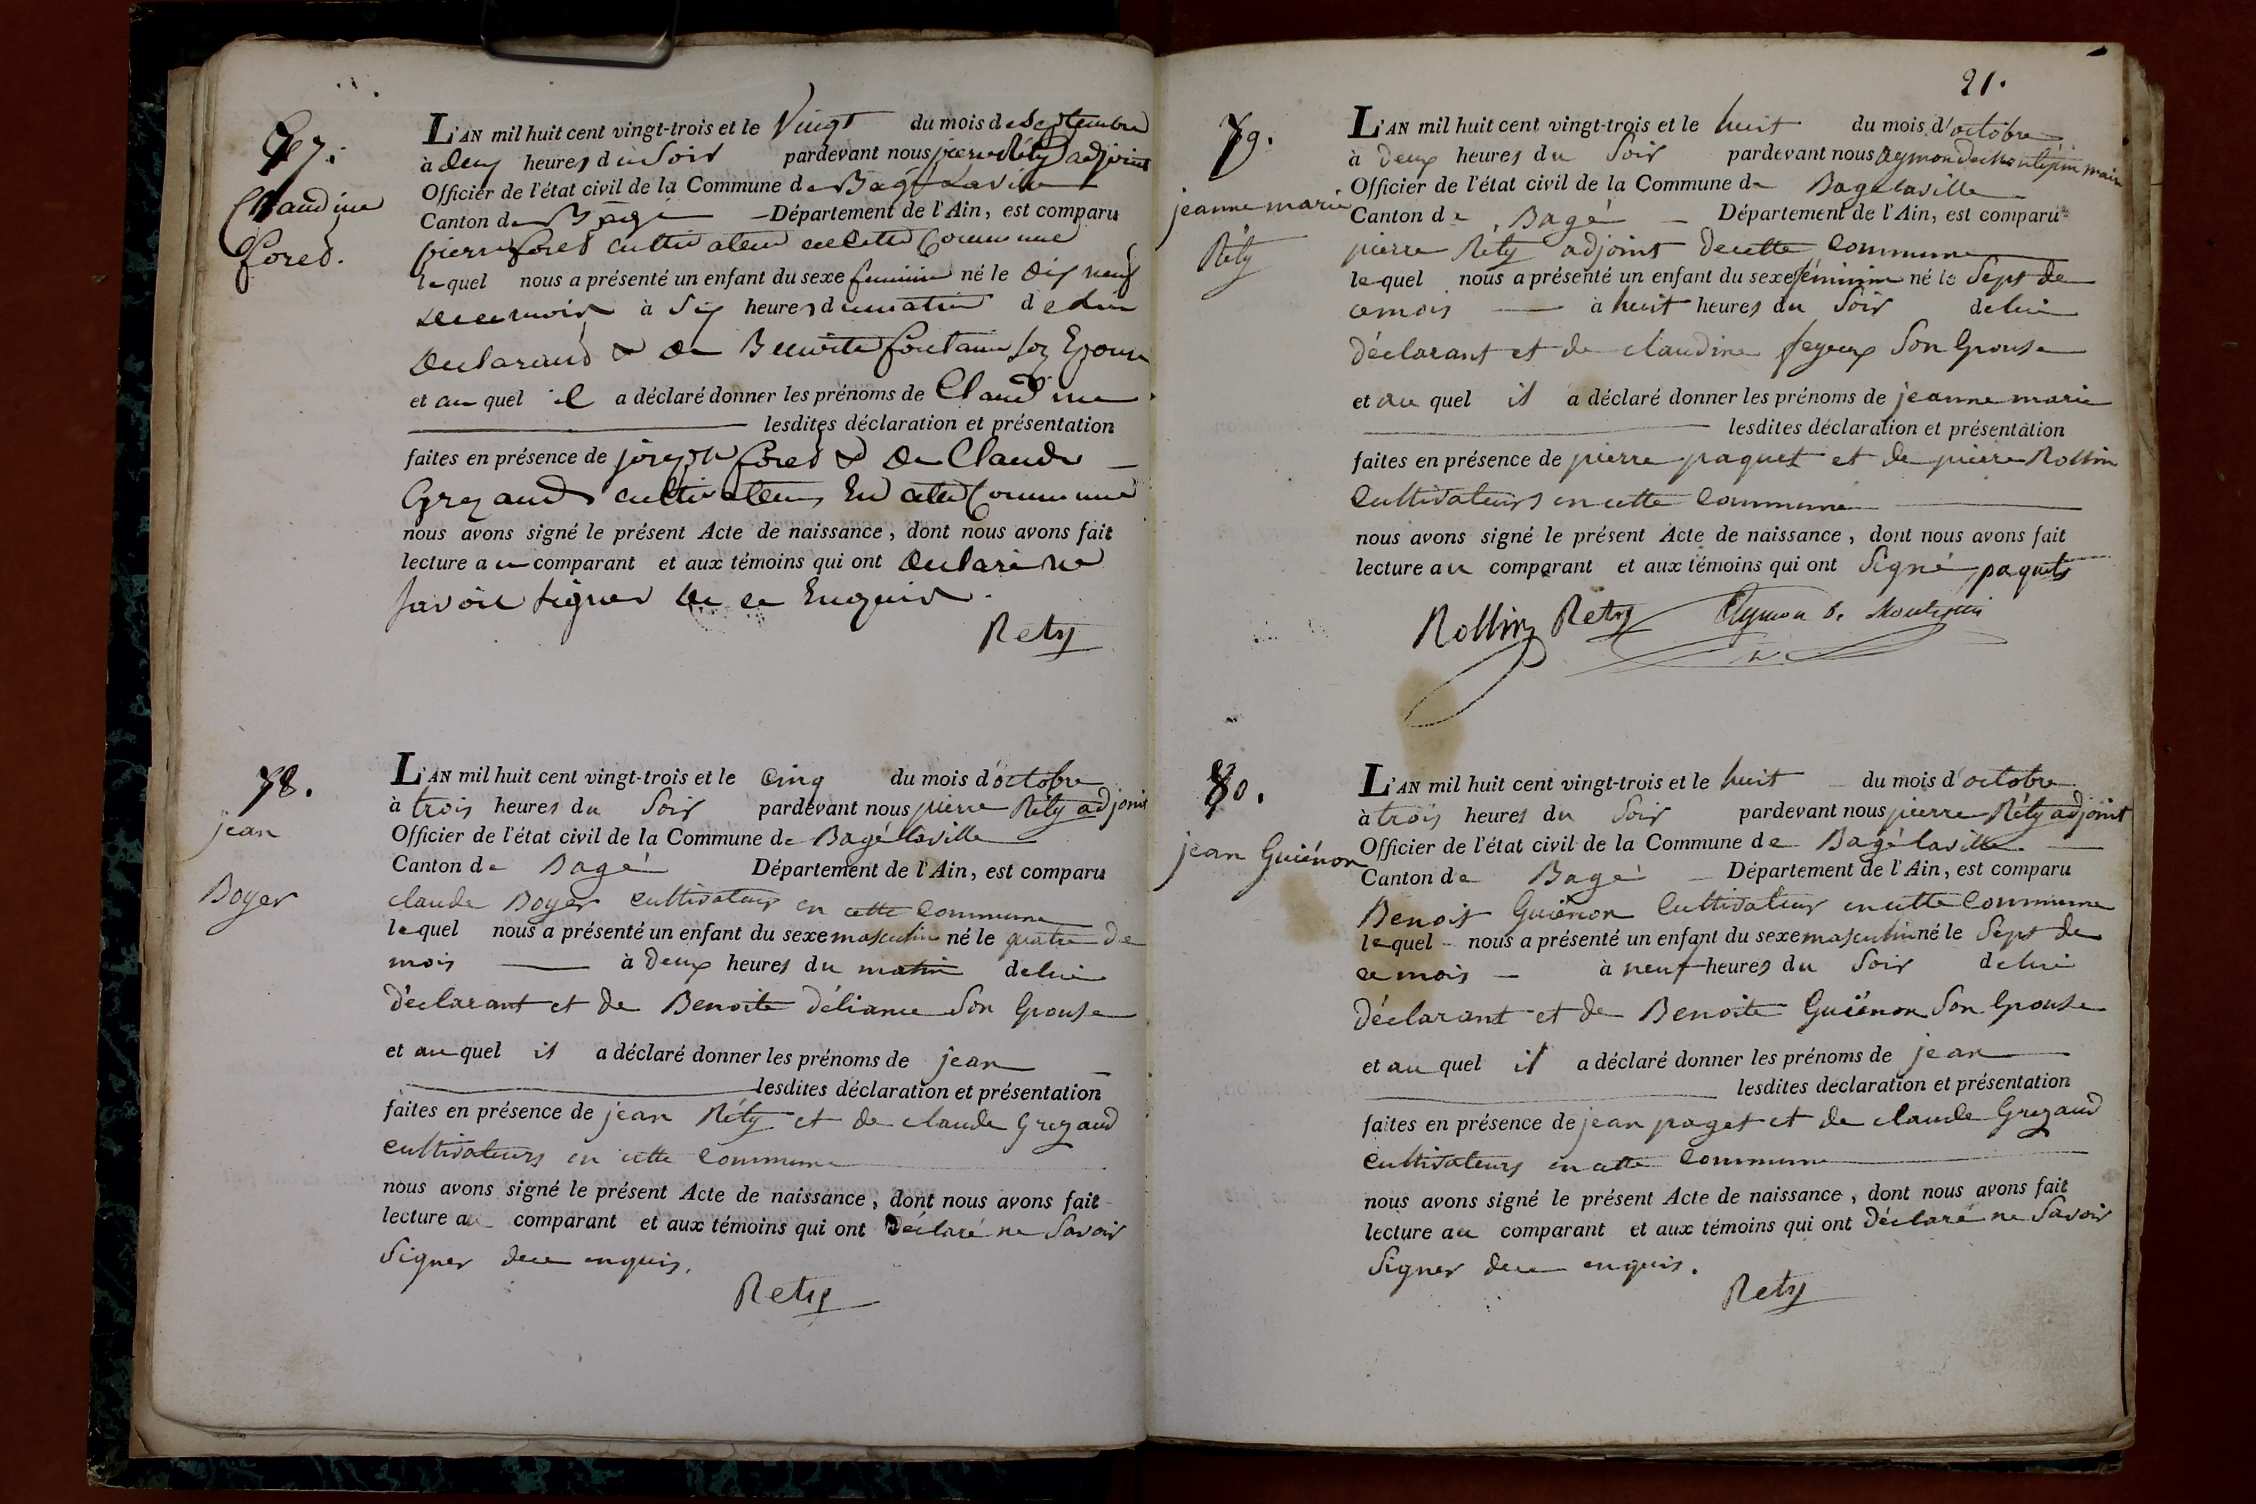 77.
Claudine
foret.
L'AN mil huit cent vingt-trois et le Vingt du mois de Septembre
à deux heures du Soir pardevant nous pierre Réty adjoint
Officier de l'état civil de la Commune de Bagé Laville
Canton de Bagé Département de l'Ain, est comparu
pierre foret cultivateur en cette Commune
lequel nous a présenté un enfant du sexe feminin né le dix neuf
de ce mois à Six heures du matin de lui
declarant & de Benoite fontaine son Epouse
et au quel il a déclaré donner les prénoms de Claudine
lesdites déclaration et présentation
faites en présence de joseph foret & de Claude
Grezaud cultivateurs En cette Commune
nous avons signé le présent Acte de naissance, dont nous avons fait
lecture au comparant et aux témoins qui ont declaré ne
savoir signer de ce Enquis.
Rety
78.
jean
Boyer
L'AN mil huit cent vingt-trois et le cinq du mois d'octobre
à trois heures du Soir pardevant nous pierre Réty adjoint
Officier de l'état civil de la Commune de Bagé laville
Canton de Bagé Département de l'Ain, est comparu
claude Boyer cultivateur en cette Commune
lequel nous a présenté un enfant du sexe masculin né le quatre de
mois à deux heures du matin de lui
déclarant et de Benoite déliance Son Epouse
et au quel il a déclaré donner les prénoms de jean
lesdites déclaration et présentation
faites en présence de jean Réty et de claude Grezaud
cultivateurs en cette Commune
nous avons signé le présent Acte de naissance, dont nous avons fait
lecture au comparant et aux témoins qui ont déclaré ne Savoir
Signer de ce enquis.
Rety
21.
79.
jeanne marie
Réty
L'AN mil huit cent vingt-trois et le huit du mois d'octobre
à deux heures du Soir pardevant nous Aymon de Montépin maire
Officier de l'état civil de la Commune de Bagé laville
Canton de Bagé Département de l'Ain, est comparu
pierre Réty adjoint de cette Commune
lequel nous a présenté un enfant du sexe féminin né le Sept de
ce mois à huit heures du Soir de lui
déclarant et de claudine feyeux Son Epouse
et au quel il a déclaré donner les prénoms de jeanne marie
lesdites déclaration et présentation
faites en présence de pierre paquet et de pierre Rollin
Cultivateurs en cette Commune
nous avons signé le présent Acte de naissance, dont nous avons fait
lecture au comparant et aux témoins qui ont Signé paquet
Rollin Rety Aymon d. Montepin
80.
jean Guiénon
L'AN mil huit cent vingt-trois et le huit du mois d'octobre
à trois heures du Soir pardevant nous pierre Réty adjoint
Officier de l'état civil de la Commune de Bagé laville
Canton de Bagé Département de l'Ain, est comparu
Benoit Guiénon Cultivateur en cette Commune
lequel nous a présenté un enfant du sexe masculin né le Sept de
ce mois à neuf heures du Soir de lui
déclarant et de Benoite Guiénon Son Epouse
et au quel il a déclaré donner les prénoms de jean
lesdites déclaration et présentation
faites en présence de jean paget et de claude Grezaud
Cultivateurs en cette Commune
nous avons signé le présent Acte de naissance, dont nous avons fait
lecture au comparant et aux témoins qui ont déclaré ne Savoir
Signer de ce enquis.
Rety